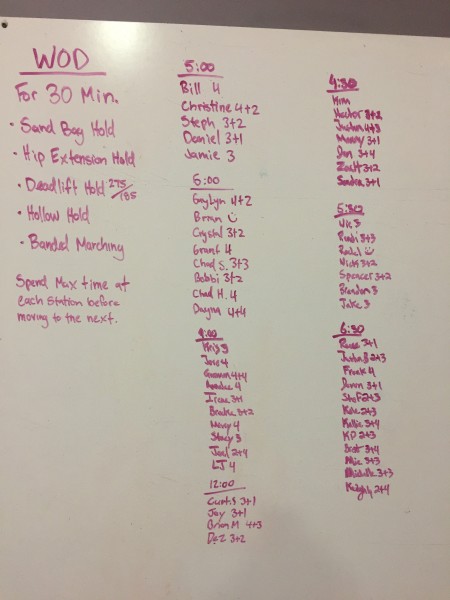 WOD
For 30 Min.
• Sand Bag Hold
• Hip Extension Hold
• Deadlift Hold 275/185
• Hollow Hold
• Banded Marching
Spend Max time at
each station before
moving to the next.
5:00
Bill 4
Christine 4+2
Steph 3+2
Daniel 3+1
Jamie 3
6:00
Gaylyn 4+2
Brian
Crystal 3+2
Grant 4
Chad S. 3+3
Bobbi 3+2
Chad H. 4
Dayna 4+4
9:00
Kris 3
Jose 4
4+4
4
Irene 3+1
3+2
Mary 4
Stacy 3
Joel 2+4
LJ 4
12:00
Curtis 3+1
Jay 3+1
Brian M 4+3
Daz 3+2
4:30
Kim
Hector 3+2
Justin 4+3
Manny 3+1
Dan 3+4
Zach 3+2
Sandra 3+1
5:30
Vic 3
3+3
Rachel
Nick 3+2
Spencer 3+2
Brandon 3
Jake 3
6:30
3+1
Justin B 2+3
Frank 4
3+1
Stef 2+3
2+3
Kellie 3+4
KP 2+3
3+4
3+3
Michelle 3+3
2+4